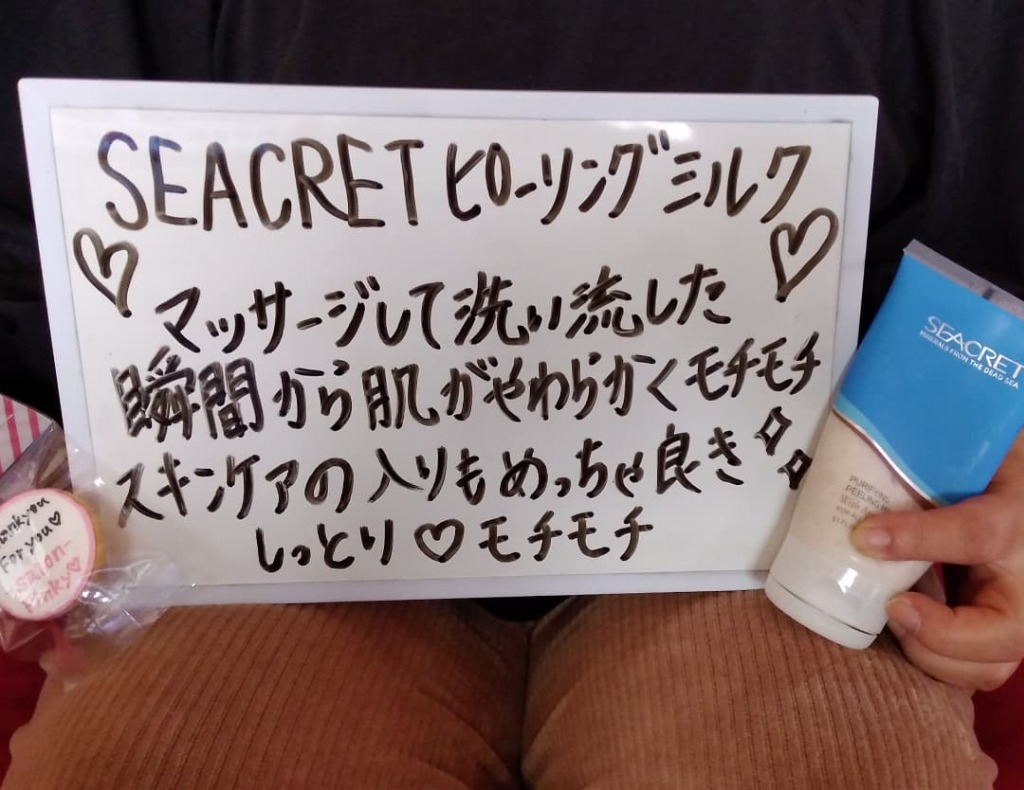 SEACRET ピローリングミルク
マッサージして洗い流した
瞬間から肌がやわらかくモチモチ
スキンケアの入りもめっちゃ良き
しっとり♡モチモチ
SEACRET
MINERALS FROM THE DEAD SEA
PURIFYING
PEELING
For you♡
salon-